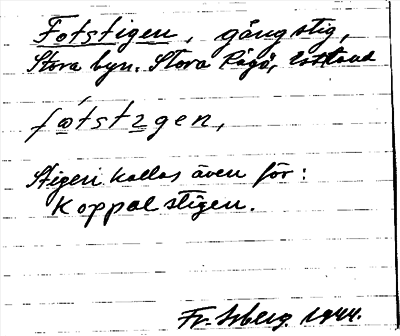 Fotstigen, gångstig,
Stora byn. Stora Rågö, Estland
fòtstigen,
Stigen kallas även för:
Koppalstigen.
Fr. Isberg. 1944.